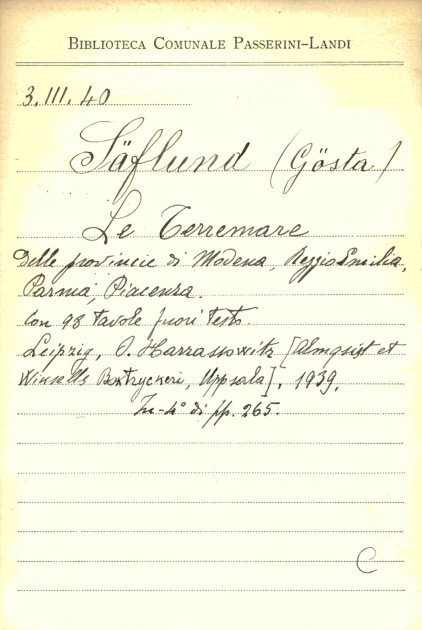 BIBLIOTECA COMUNALE PASSERINI-LANDI
3.III.40
Säflund (Gösta)
Le Terremare
Delle provincie di Modena, Reggio Emilia,
Parma, Piacenza.
Con 98 tavole fuori testo.
Leipzig, O. Harrassowitz [Almqist et
Wiksells Boktryckeri, Uppsala], 1939.
In-4° di pp. 265.
C